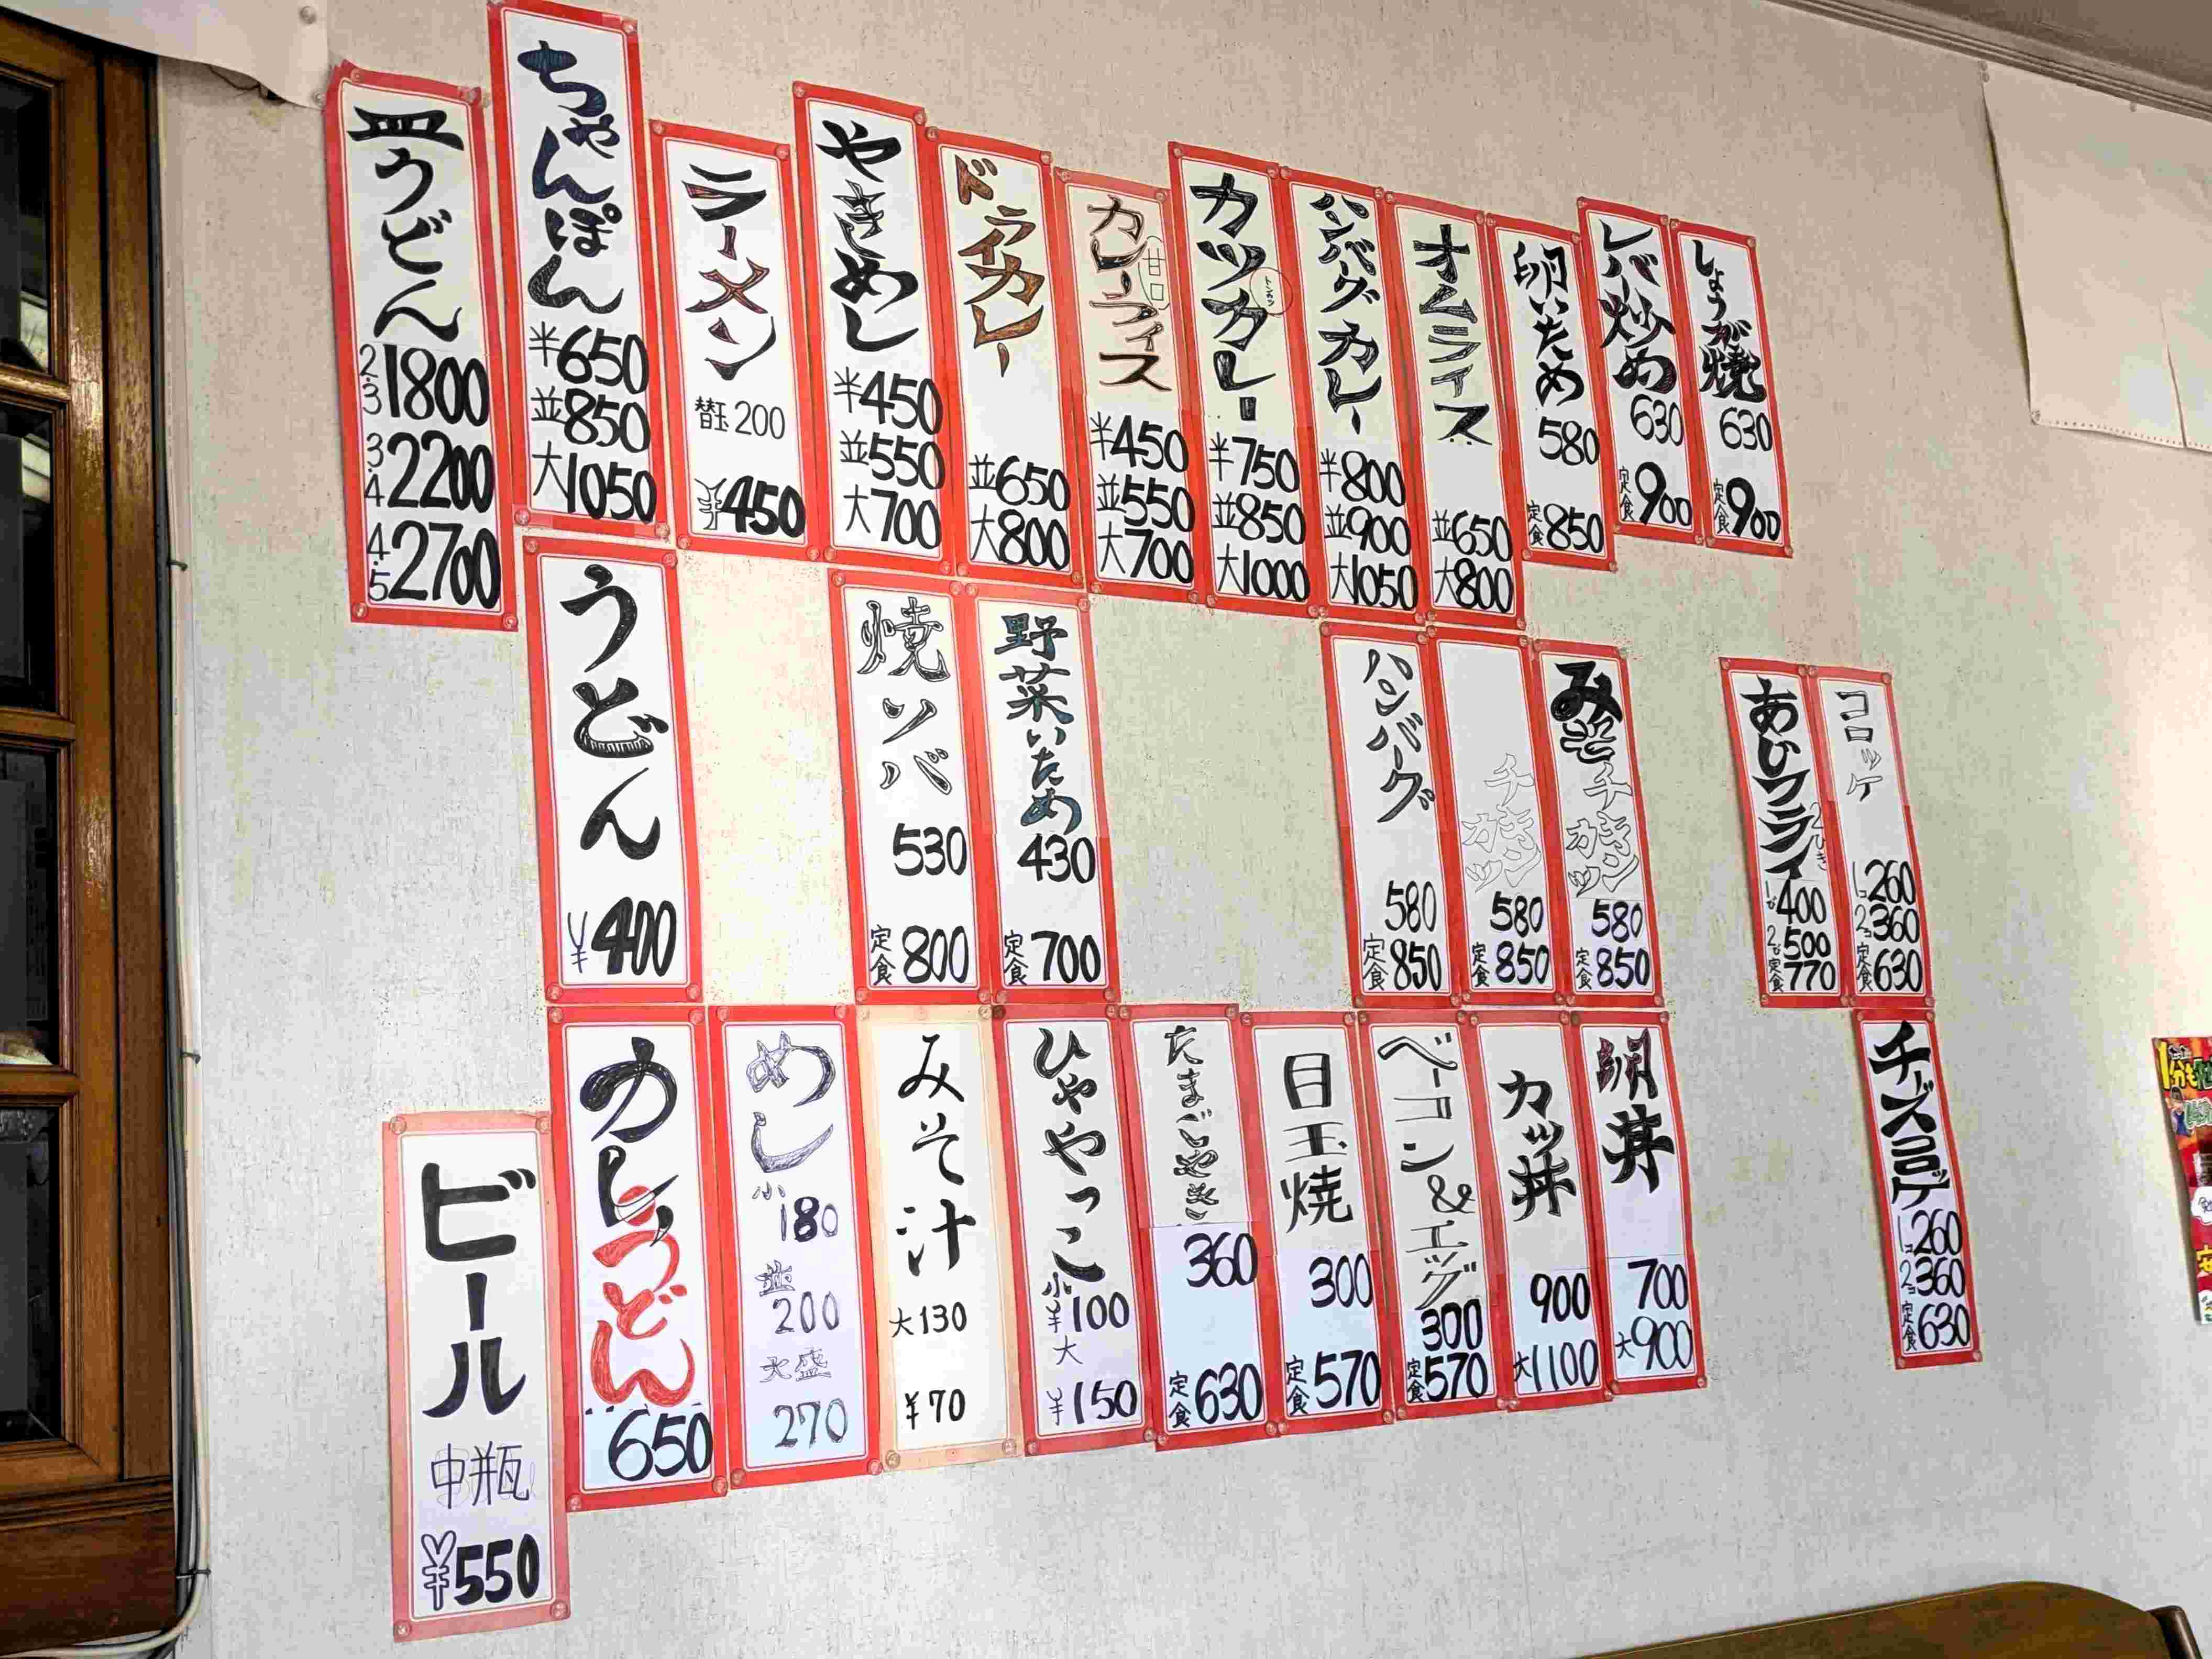 皿うどん
2.3 1800
3.4 2200
4.5 2700
ちゃんぽん
半650
並850
大1050
ラーメン
替玉200
¥450
やきめし
半450
並550
大700
ドライカレー
並650
大800
カレーライス
甘口
半450
並550
大700
カツカレー
トンカツ
半750
並850
大1000
ハンバグカレー
半800
並900
大1050
オムライス
並650
大800
卵いため
580
定食850
レバ炒め
630
定食900
しょうが焼
630
定食900
うどん
¥400
焼ソバ
530
定食800
野菜いため
430
定食700
ハンバーグ
580
定食850
チキンカツ
580
定食850
みそチキンカツ
580
定食850
あじフライ
400
500
定食770
コロッケ
1コ260
2コ360
定食630
ビール
中瓶
¥550
かしわうどん
650
めし
小180
並200
大盛270
みそ汁
大130
¥70
ひややっこ
小¥100
大¥150
たまごやき
360
定食630
目玉焼
300
定食570
ベーコン&エッグ
300
定食570
カツ丼
900
大1100
卵丼
700
大900
チーズコロッケ
1コ260
2コ360
定食630